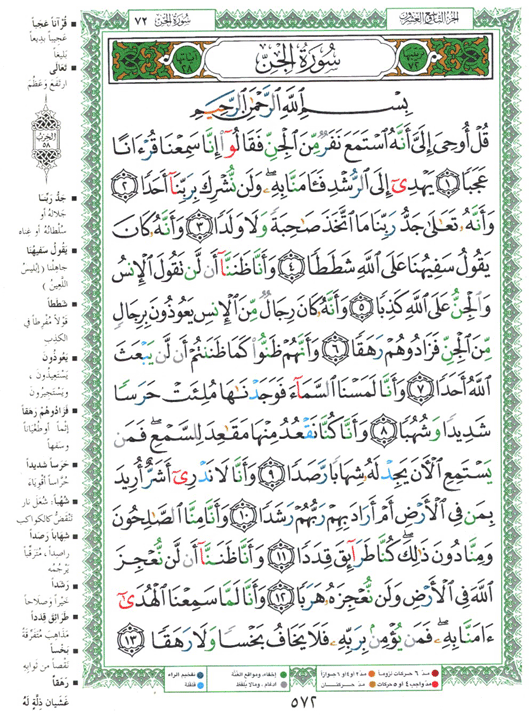 سُورَةُ الجِنّ ٧٢
الجزء التاسع والعشرون
سُورَةُ الجِنِّ
بِسْمِ ٱللَّهِ ٱلرَّحْمَٰنِ ٱلرَّحِيمِ
قُلْ أُوحِىَ إِلَىَّ أَنَّهُ ٱسْتَمَعَ نَفَرٌ مِّنَ ٱلْجِنِّ فَقَالُوٓا۟ إِنَّا سَمِعْنَا قُرْءَانًا
عَجَبًا ١ يَهْدِىٓ إِلَى ٱلرُّشْدِ فَـَٔامَنَّا بِهِۦ وَلَن نُّشْرِكَ بِرَبِّنَآ أَحَدًا ٢
وَأَنَّهُۥ تَعَٰلَىٰ جَدُّ رَبِّنَا مَا ٱتَّخَذَ صَٰحِبَةً وَلَا وَلَدًا ٣ وَأَنَّهُۥ كَانَ
يَقُولُ سَفِيهُنَا عَلَى ٱللَّهِ شَطَطًا ٤ وَأَنَّا ظَنَنَّآ أَن لَّن تَقُولَ ٱلْإِنسُ
وَٱلْجِنُّ عَلَى ٱللَّهِ كَذِبًا ٥ وَأَنَّهُۥ كَانَ رِجَالٌ مِّنَ ٱلْإِنسِ يَعُوذُونَ بِرِجَالٍ
مِّنَ ٱلْجِنِّ فَزَادُوهُمْ رَهَقًا ٦ وَأَنَّهُمْ ظَنُّوا۟ كَمَا ظَنَنتُمْ أَن لَّن يَبْعَثَ
ٱللَّهُ أَحَدًا ٧ وَأَنَّا لَمَسْنَا ٱلسَّمَآءَ فَوَجَدْنَٰهَا مُلِئَتْ حَرَسًا
شَدِيدًا وَشُهُبًا ٨ وَأَنَّا كُنَّا نَقْعُدُ مِنْهَا مَقَٰعِدَ لِلسَّمْعِ ۖ فَمَن
يَسْتَمِعِ ٱلْـَٔانَ يَجِدْ لَهُۥ شِهَابًا رَّصَدًا ٩ وَأَنَّا لَا نَدْرِىٓ أَشَرٌّ أُرِيدَ
بِمَن فِى ٱلْأَرْضِ أَمْ أَرَادَ بِهِمْ رَبُّهُمْ رَشَدًا ١٠ وَأَنَّا مِنَّا ٱلصَّٰلِحُونَ
وَمِنَّا دُونَ ذَٰلِكَ ۖ كُنَّا طَرَآئِقَ قِدَدًا ١١ وَأَنَّا ظَنَنَّآ أَن لَّن نُّعْجِزَ
ٱللَّهَ فِى ٱلْأَرْضِ وَلَن نُّعْجِزَهُۥ هَرَبًا ١٢ وَأَنَّا لَمَّا سَمِعْنَا ٱلْهُدَىٰٓ
ءَامَنَّا بِهِۦ ۖ فَمَن يُؤْمِنۢ بِرَبِّهِۦ فَلَا يَخَافُ بَخْسًا وَلَا رَهَقًا ١٣
قُرْآناً عَجَباً
عَجِيباً بَدِيعاً
بَلِيغاً
تَعَالَى
ارْتَفَعَ وَعَظُمَ
الحِزْبُ
٥٨
جَدُّ رَبِّنَا
جَلَالُهُ أو
سُلْطَانُهُ أو غِنَاه
يَقُولُ سَفِيهُنَا
جَاهِلُنَا (إبْلِيسُ
اللَّعِينُ)
شَطَطاً
قَوْلاً مُفْرِطاً في
الكَذِبِ
يَعُوذُونَ
يَسْتَعِيذُونَ
ويَسْتَجِيرُون
فَزَادُوهُمْ رَهَقاً
إثْماً أو طُغْيَاناً
وسَفَهاً
حَرَساً شَدِيداً
حُرَّاساً أقْوِيَاءَ
شُهُباً: شُعَلَ نارٍ
تَنْقَضُّ كالكَوَاكِبِ
شِهَاباً رَصَداً
رَاصِداً، مُتَرَقِّباً
يَرْجُمُه
رَشَداً
خَيْراً وَصَلَاحاً
طَرَائِقَ قِدَداً
مَذَاهِبَ مُتَفَرِّقَةً
بَخْساً
نَقْصاً من ثَوابِهِ
رَهَقاً
غَشَيَانَ ذِلَّةٍ لَهُ
مدّ ٦ حركات لزوماً
مدّ ٢ أو ٤ أو ٦ جوازاً
إخفاء، ومواقع الغُنَّة
تفخيم الراء
مدّ واجب ٤ أو ٥ حركات
مدّ حركتان
ادغام، ومالا يُلفظ
قلقلة
٥٧٢